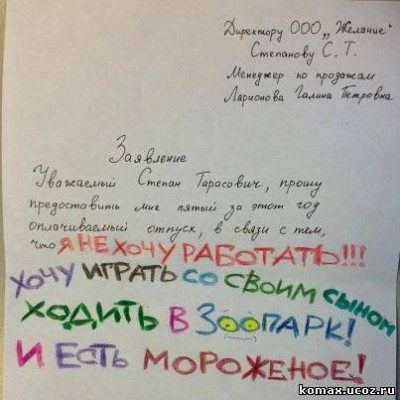 Директору ООО „Желание"
Степанову С. Т.
Менеджер по продажам
Ларионова Галина Петровна
Заявление
Уважаемый Степан Тарасович, прошу
предоставить мне пятый за этот год
оплачиваемый отпуск, в связи с тем,
что Я НЕ ХОЧУ РАБОТАТЬ!!!
ХОЧУ ИГРАТЬ СО СВОИМ СЫНОМ
ХОДИТЬ В ЗООПАРК!
И ЕСТЬ МОРОЖЕНОЕ!
komax.ucoz.ru